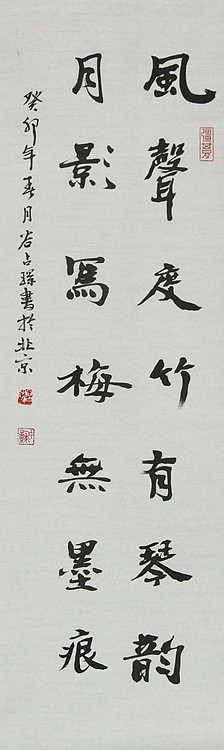 風聲度竹有琴韵
月影寫梅無墨痕
癸卯年春月谷占輝書於北京